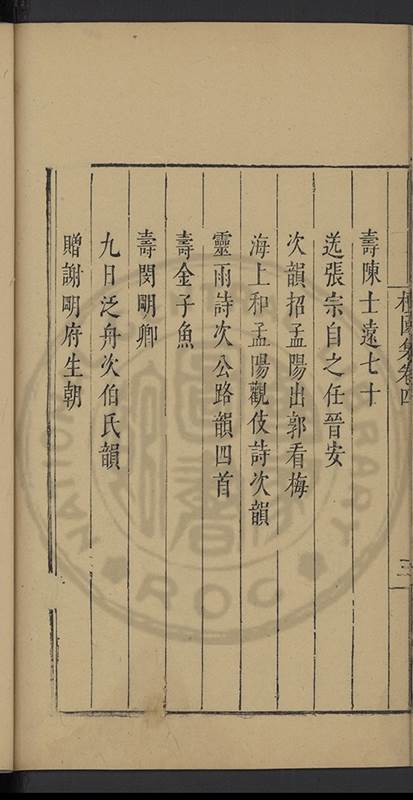 集卷四
三
壽陳士遠七十
送張宗自之任晉安
次韻招孟陽出郭看梅
海上和孟陽觀伎詩次韻
靈雨詩次公路韻四首
壽金子魚
壽閔明卿
九日泛舟次伯氏韻
贈謝明府生朝